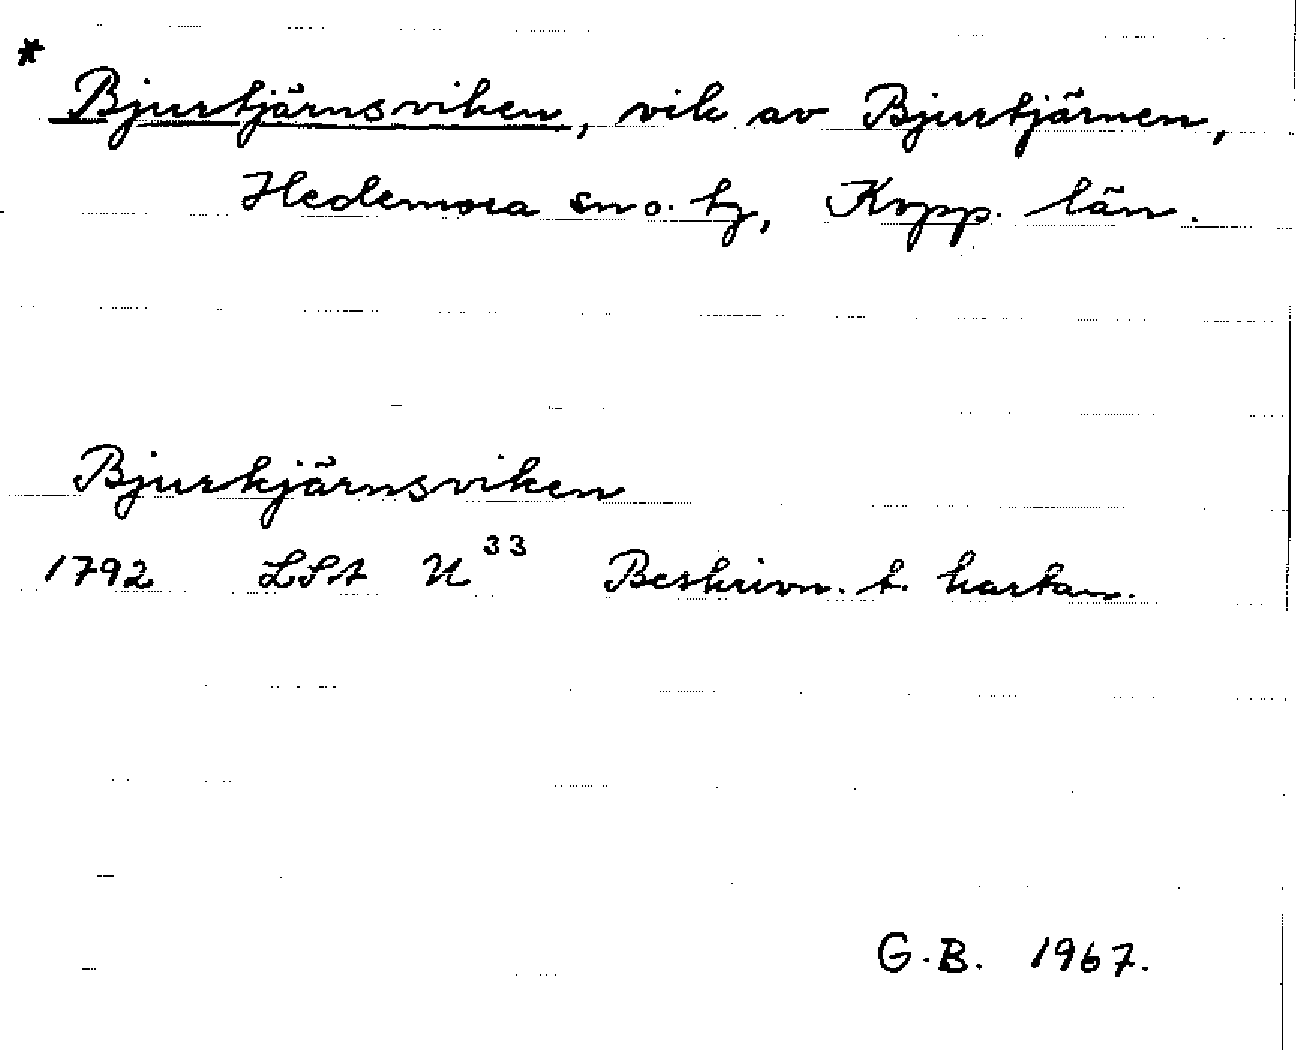 * Bjurtjärnsviken, vik av Bjurtjärnen,
Hedemora sn o. tg, Kopp. län.
Bjurkjärnsviken
1792 LSA U 33 Beskrivn. t. kartan.
G.B. 1967.